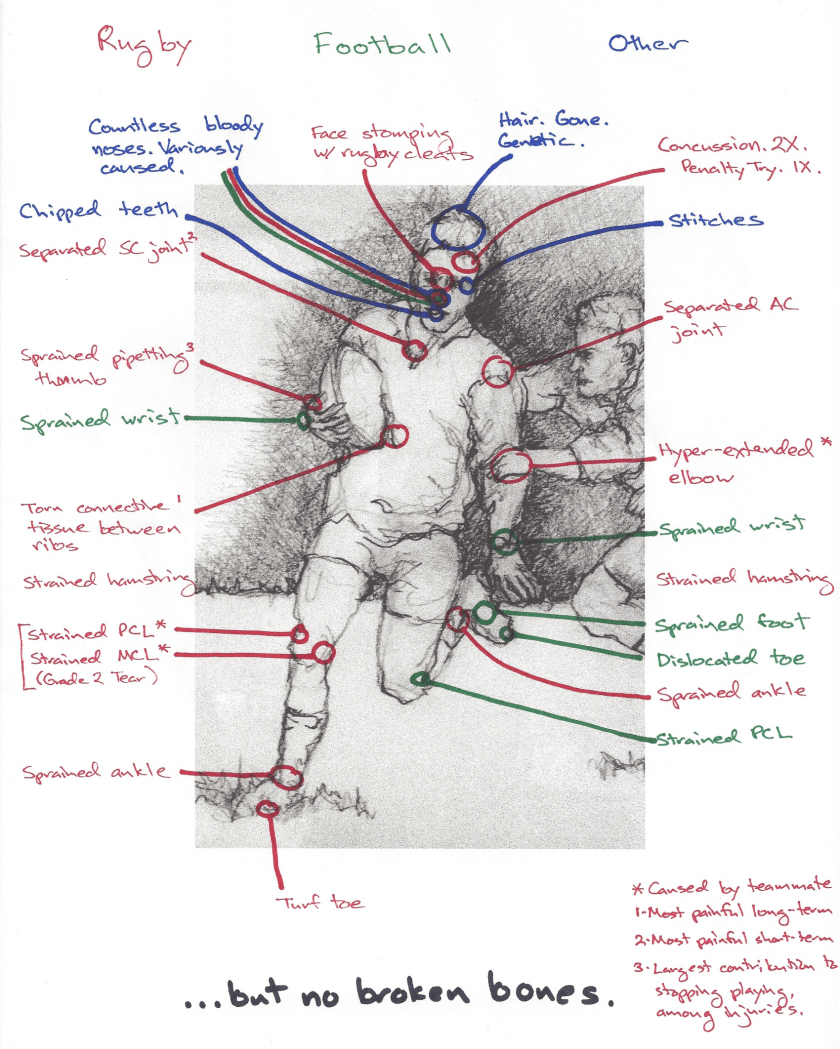 Rugby
Football
Other
Countless bloody
noses. Variously
caused.
Face stomping
w/ rugby cleats
Hair. Gone.
Genetic.
Concussion. 2X.
Penalty Try. 1X.
Chipped teeth
Stitches
Separated SC joint²
Separated AC
joint
Sprained pipetting³
thumb
Sprained wrist
Hyper-extended *
elbow
Torn connective ¹
tissue between
ribs
Sprained wrist
Strained hamstring
Strained hamstring
Strained PCL*
Strained MCL*
(Grade 2 Tear)
Sprained foot
Dislocated toe
Sprained ankle
Strained PCL
Sprained ankle
Turf toe
* Caused by teammate
1-Most painful long-term
2-Most painful short-term
3-Largest contribution to
stopping playing,
among injuries.
...but no broken bones.